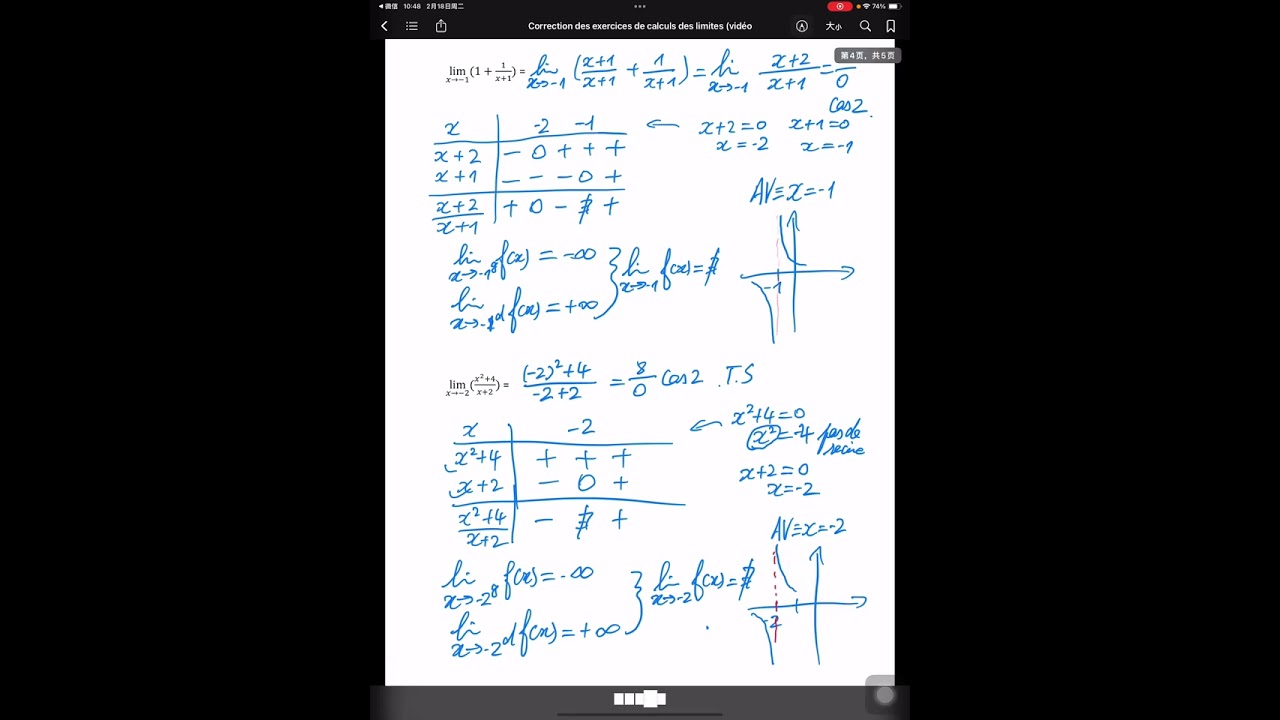 微信 10:48 2月18日周二
74%
Correction des exercices de calculs des limites (vidéo
大小
第4页，共5页
lim x→−1 (1 + 1/(x+1)) = lim x→-1 (x+1/x+1 + 1/x+1) = lim x→-1 x+2/x+1 = /0
cas 2.
x -2 -1 ← x+2=0 x+1=0
x+2 − 0 + + + x=-2 x=-1
x+1 − − − 0 +
x+2/x+1 + 0 − ∄ +
AV≡x=-1
lim x→-1g f(x) = -∞
lim x→-1 f(x) = ∄
lim x→-1d f(x) = +∞
-1
lim x→−2 (x²+4/x+2) = (-2)²+4/-2+2 = 8/0 cas 2 . T.S
x -2 ← x²+4=0
x²=-4 pas de racine
x²+4 + + +
x+2 − 0 +
x+2=0
x=-2
x²+4/x+2 − ∄ +
AV≡x=-2
lim x→-2g f(x)=-∞
lim x→-2 f(x)=∄
lim x→-2d f(x)=+∞
-2